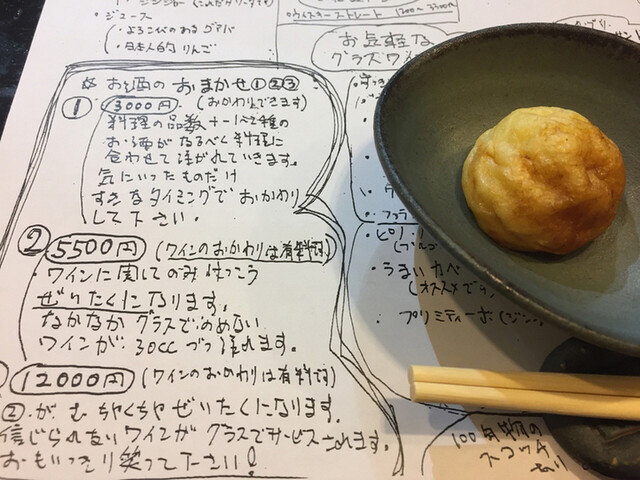 ・ジュース
・よろこびのあるグアバ
・日本人的りんご
ウイスキーストレート
お気軽な
グラスワ
☆ お酒のおまかせ①②③
① 3000円 (おかわりできます)
料理の品数+1〜2種の
お酒がなるべく料理に
合わせて注がれていきます。
気にいったものだけ
すきなタイミングでおかわり
して下さい。
② 5500円 (ワインのおかわりは有料です)
・ワインに関してのみけっこう
ぜいたくになります。
なかなかグラスでのめない
ワインが30ccづつ注れます。
12000円 (ワインのおかわりは有料です)
②がむちゃくちゃぜいたくになります。
信じられないワインがグラスでサービスされます。
おもいっきり笑って下さい!
・うまいカベ
(オススメです
・プリミティーボ
100年物の
スコッチ
あり